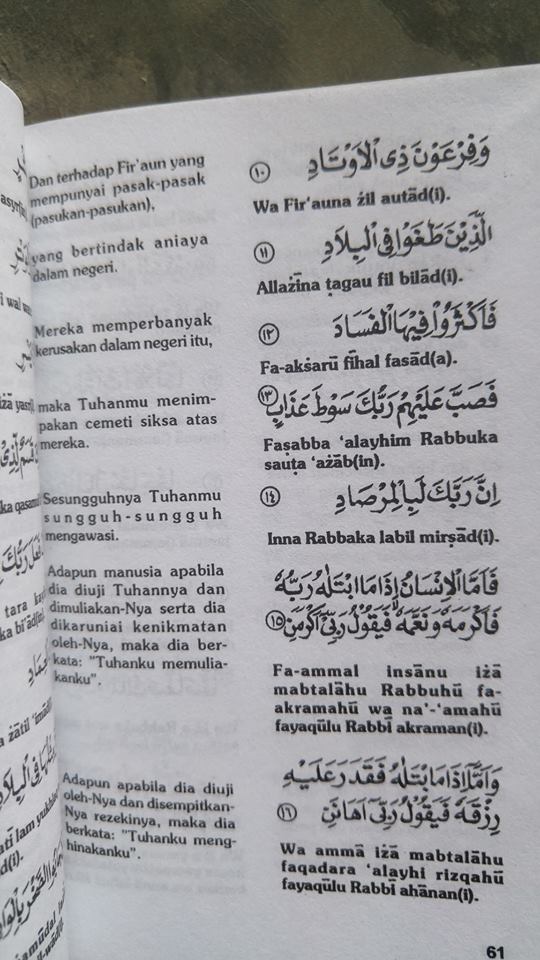 Dan terhadap Fir'aun yang
mempunyai pasak-pasak
(pasukan-pasukan),
وَفِرْعَوْنَ ذِى الْاَوْتَادِ ١٠
Wa Fir'auna żil autād(i).
yang bertindak aniaya
dalam negeri.
الَّذِيْنَ طَغَوْا فِى الْبِلَادِ ١١
Allażīna ṭagau fil bilād(i).
Mereka memperbanyak
kerusakan dalam negeri itu,
فَاَكْثَرُوْا فِيْهَا الْفَسَادَ ١٢
Fa-akṡarū fīhal fasād(a).
maka Tuhanmu menim-
pakan cemeti siksa atas
mereka.
فَصَبَّ عَلَيْهِمْ رَبُّكَ سَوْطَ عَذَابٍ ١٣
Faṣabba 'alayhim Rabbuka
sauṭa 'ażāb(in).
Sesungguhnya Tuhanmu
sungguh-sungguh
mengawasi.
اِنَّ رَبَّكَ لَبِالْمِرْصَادِ ١٤
Inna Rabbaka labil mirṣād(i).
Adapun manusia apabila
dia diuji Tuhannya dan
dimuliakan-Nya serta dia
dikaruniai kenikmatan
oleh-Nya, maka dia ber-
kata: "Tuhanku memulia-
kanku".
فَاَمَّا الْاِنْسَانُ اِذَا مَا ابْتَلٰىهُ رَبُّهٗ
فَاَكْرَمَهٗ وَنَعَّمَهٗ فَيَقُوْلُ رَبِّيْٓ اَكْرَمَنِ ١٥
Fa-ammal insānu iżā
mabtalāhu Rabbuhū fa-
akramahū wa na'-'amahū
fayaqūlu Rabbī akraman(i).
Adapun apabila dia diuji
oleh-Nya dan disempitkan-
Nya rezekinya, maka dia
berkata: "Tuhanku meng-
hinakanku".
وَاَمَّآ اِذَا مَا ابْتَلٰىهُ فَقَدَرَ عَلَيْهِ
رِزْقَهٗ فَيَقُوْلُ رَبِّيْٓ اَهَانَنِ ١٦
Wa ammā iżā mabtalāhu
faqadara 'alayhi rizqahū
fayaqūlu Rabbī ahānan(i).
61